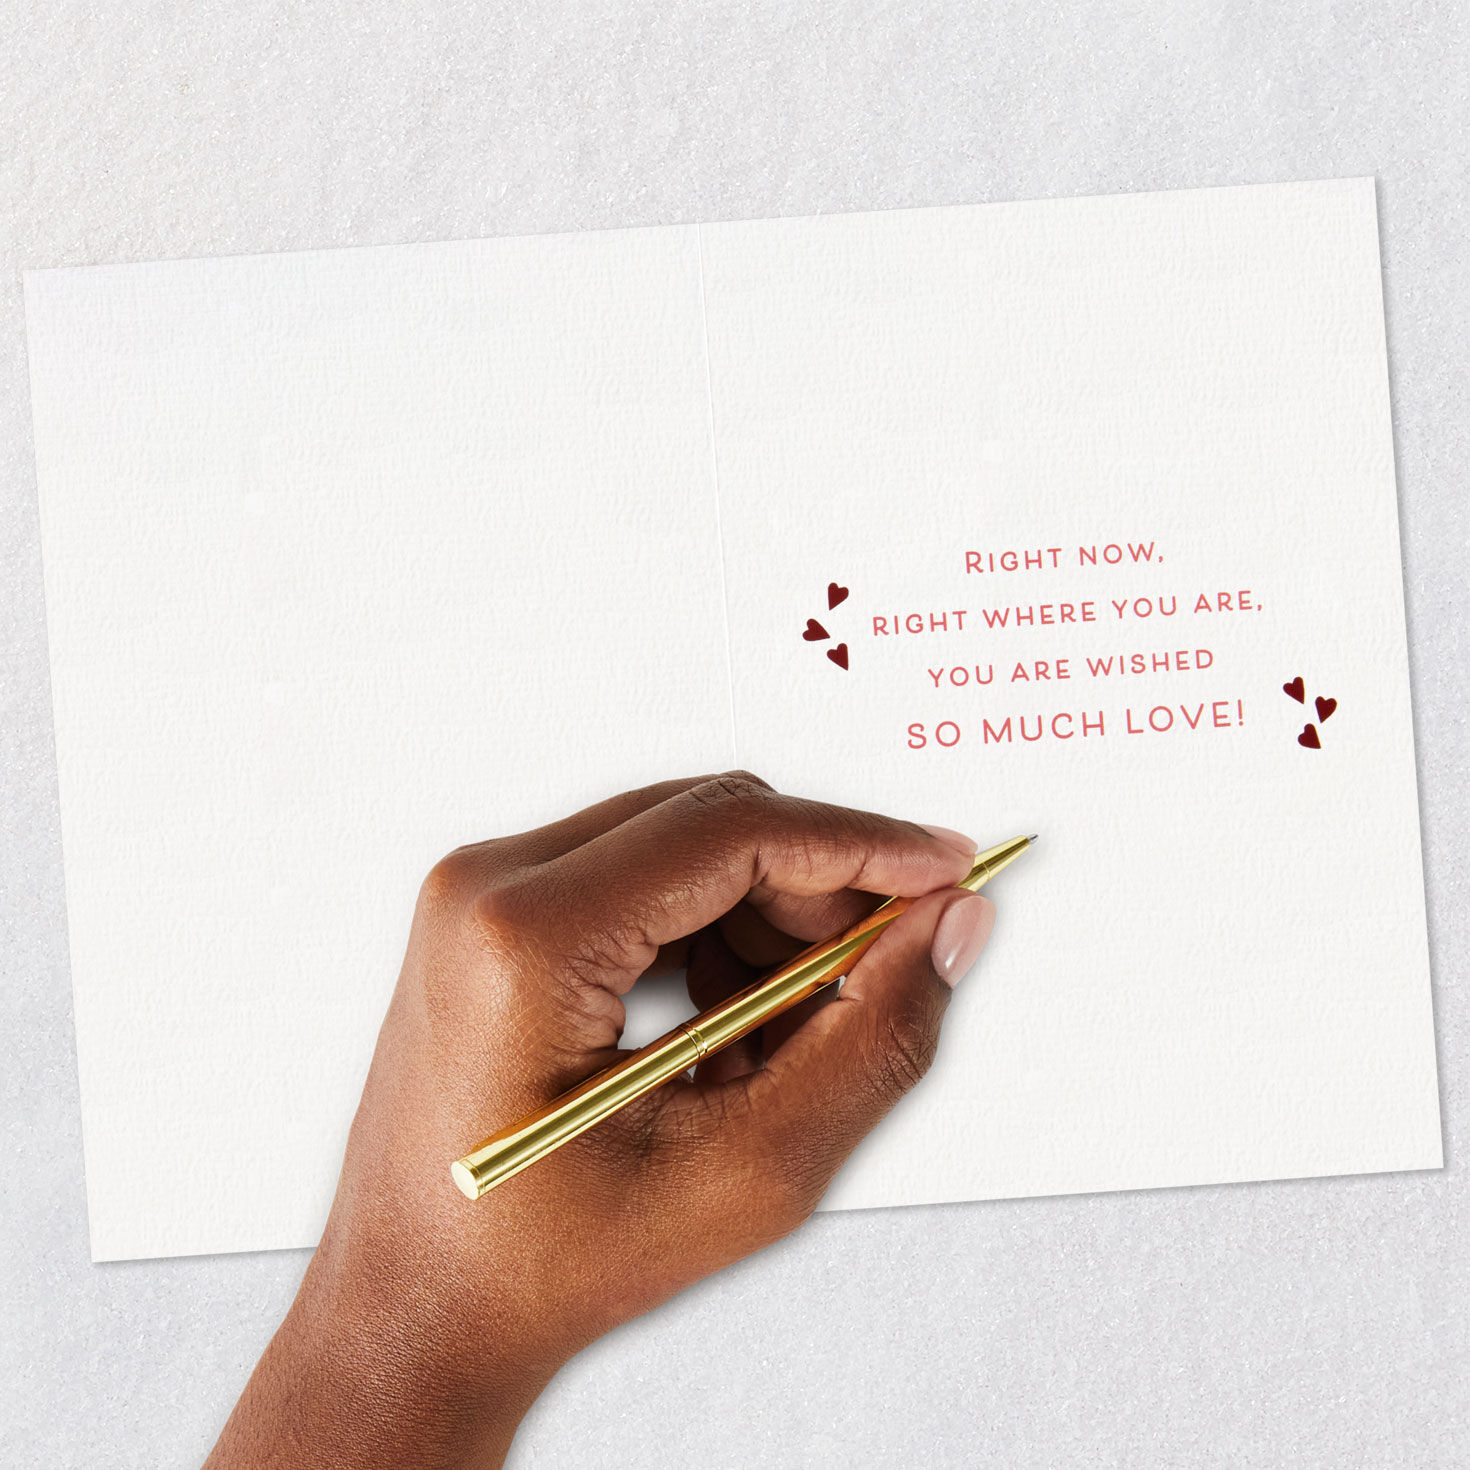 RIGHT NOW,
RIGHT WHERE YOU ARE,
YOU ARE WISHED
SO MUCH LOVE!